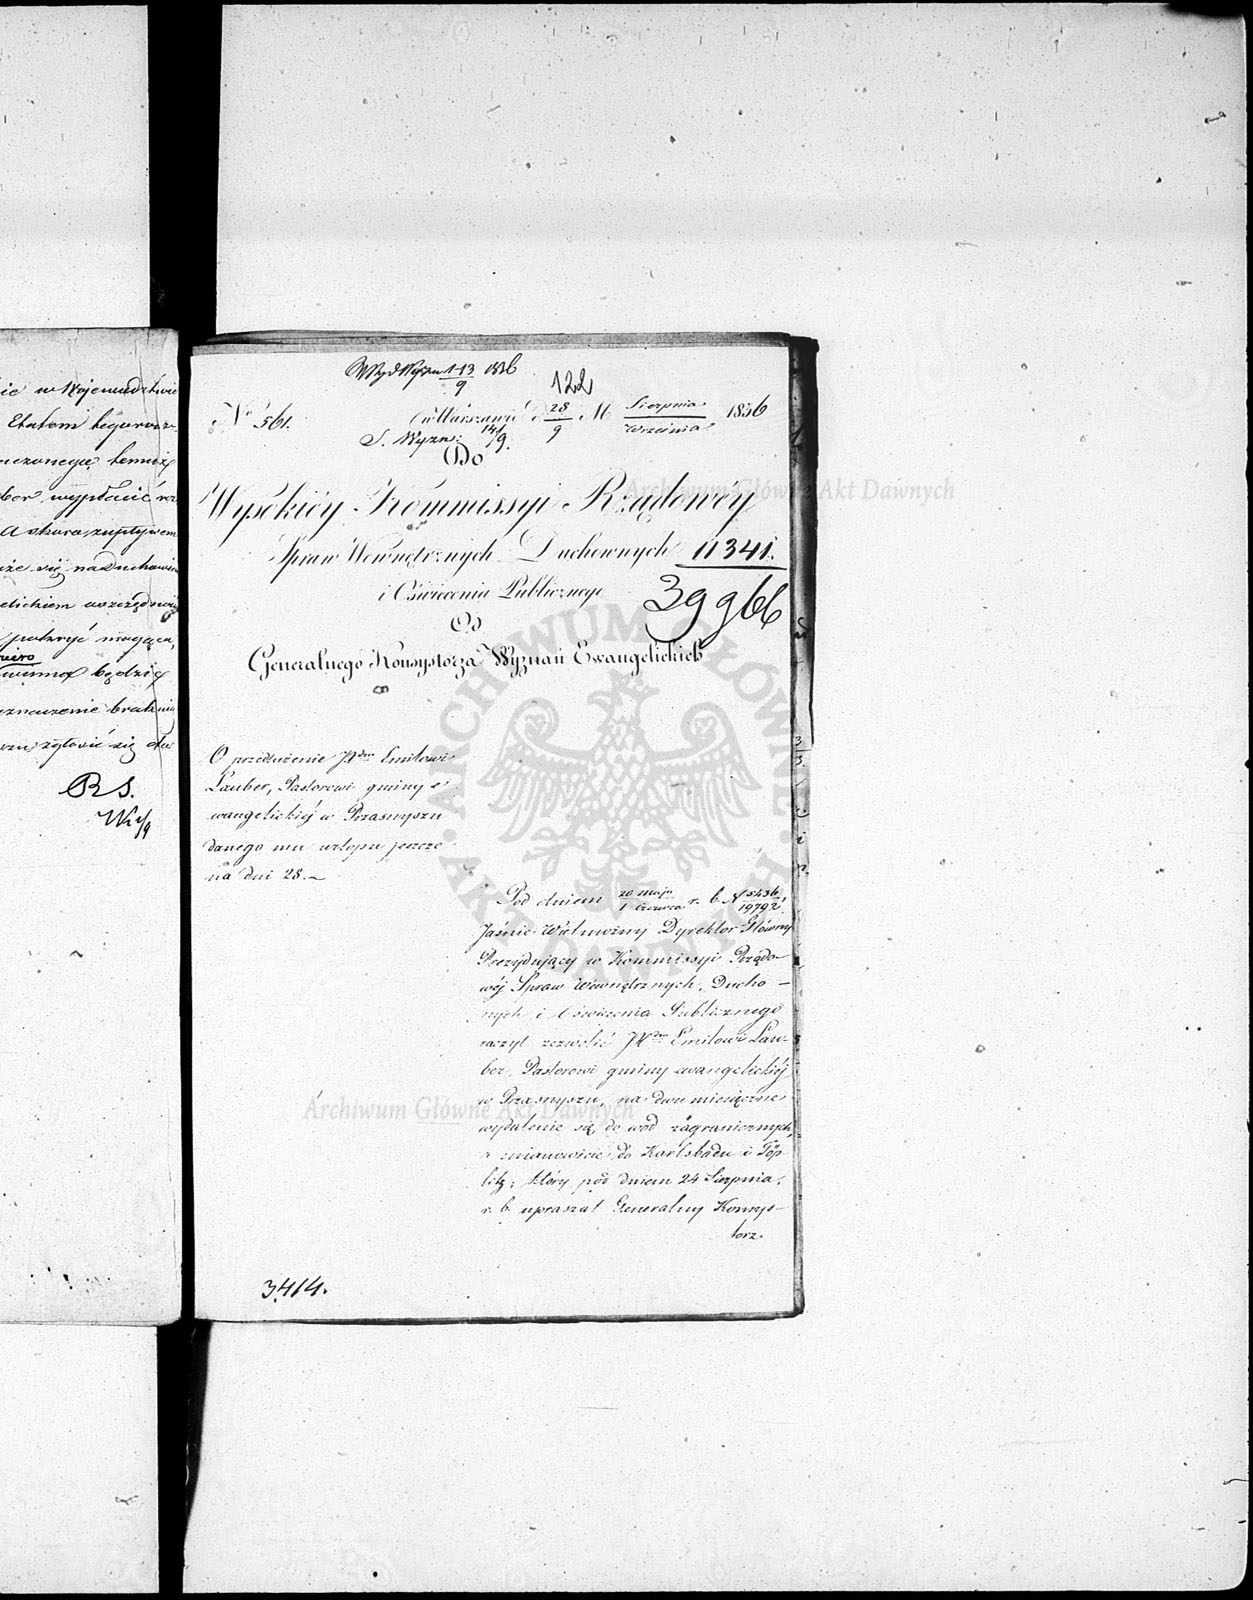 ie w Wojewodztwie
Etatem
temuż
ber wypłacić
się na Duchowi
pokryć mogąca,
winna będzie
oznaczenie
zgłosić się do
RS.
Wyd Wyzn 1-13/9 1836
122
№ 561. w Warszawie d 28/9 M Sierpnia/Września 1836
S. Wyzn: 14/9.
Do
Wysokiéy Kommissyi Rządowéy
Spraw Wewnętrznych Duchownych 11341.
i Oświecenia Publicznego
39966
Od
Generalnego Konsystorza Wyznań Ewangelickich
O przedłużenie JXdzu Emilowi
Lauber, Pastorowi gminy e-
wangelickiéj w Przasnyszu
danego mu urlopu jeszcze
na dni 28.
Pod dniem 20 maja/1 czerwca r. b. № 5436/19792,
Jaśnie Wielmożny Dyrektor Główny
Prezydujący w Kommissyi Rządo-
wéj Spraw Wewnętrznych, Ducho-
nych i Oświecenia Publicznego
raczył zezwolić JXdzu Emilowi Lau-
ber, Pastorowi gminy ewangelickiéj
w Przasnyszu, na dwu miesięczne
wydalenie się do wód zagranicznych,
a mianowicie do Karlsbadu i Töp-
litz; który pod dniem 24 Sierpnia
r. b. upraszał Generalny Konsys-
torz
3414.
Archiwum Główne Akt Dawnych
Archiwum Główne Akt Dawnych
ARCHIWUM GŁÓWNE AKT DAWNYCH